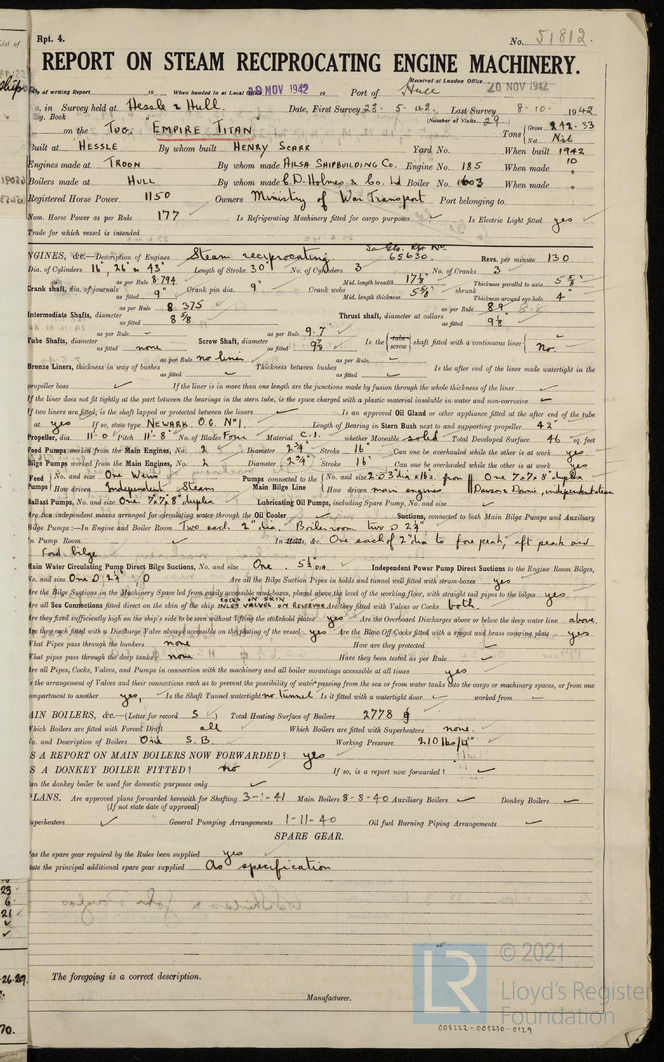 Rpt. 4.
No. 51812.
REPORT ON STEAM RECIPROCATING ENGINE MACHINERY.
Received at London Office
of writing Report 19 When handed in at Local Office NOV 1942 19 Port of Hull 20 NOV 1942
in Survey held at Hessle & Hull. Date, First Survey 23. 5. 42. Last Survey 8. 10. 1942
Book (Number of Visits 29)
on the TUG. "EMPIRE TITAN" Tons Gross 242.33 Net Nil
Built at HESSLE By whom built HENRY SCARR Yard No. When built 1942
Engines made at TROON By whom made AILSA SHIPBUILDING Co. Engine No. 185 When made 10
Boilers made at HULL By whom made C.D. Holmes & Co. Ltd Boiler No. 1603 When made "
Registered Horse Power 1150 Owners Ministry of War Transport Port belonging to
Nom. Horse Power as per Rule 177 Is Refrigerating Machinery fitted for cargo purposes Is Electric Light fitted yes
Trade for which vessel is intended
ENGINES, &c.—Description of Engines Steam reciprocating. 65630. Revs. per minute 130
Dia. of Cylinders 16", 26" & 43" Length of Stroke 30" No. of Cylinders 3 No. of Cranks 3
Crank shaft, dia. of journals as per Rule 8.794 as fitted 9" Crank pin dia. 9" Crank webs Mid. length breadth 17½" Mid. length thickness 5⅝" shrunk Thickness parallel to axis 5⅝" Thickness around eye-hole 4"
Intermediate Shafts, diameter as per Rule 8.375 as fitted 8⅝ Thrust shaft, diameter at collars as per Rule 8.9 as fitted 9⅛"
Tube Shafts, diameter as per Rule as fitted none Screw Shaft, diameter as per Rule 9.7" as fitted 9⅞ Is the tube screw shaft fitted with a continuous liner No.
Bronze Liners, thickness in way of bushes as per Rule no liner as fitted Thickness between bushes as per Rule as fitted Is the after end of the liner made watertight in the
propeller boss If the liner is in more than one length are the junctions made by fusion through the whole thickness of the liner
If the liner does not fit tightly at the part between the bearings in the stern tube, is the space charged with a plastic material insoluble in water and non-corrosive
If two liners are fitted, is the shaft lapped or protected between the liners Is an approved Oil Gland or other appliance fitted at the after end of the tube
yes If so, state type NEWARK. O.G. No1. Length of Bearing in Stern Bush next to and supporting propeller 42"
Propeller, dia. 11'-0" Pitch 11'-8" No. of Blades Four Material C.I. whether Moveable solid Total Developed Surface 46 sq. feet
Feed Pumps worked from the Main Engines, No. 2 Diameter 2¾" Stroke 16" Can one be overhauled while the other is at work yes
Bilge Pumps worked from the Main Engines, No. 2 Diameter 2¾" Stroke 16" Can one be overhauled while the other is at work yes
Feed Pumps No. and size One Weir How driven Independent Steam Pumps connected to the Main Bilge Line No. and size How driven main engines One 7x7x8" duplex
Ballast Pumps, No. and size One 7"x7"x8" duplex Lubricating Oil Pumps, including Spare Pump, No. and size
Are two independent means arranged for circulating water through the Oil Cooler Suctions, connected to both Main Bilge Pumps and Auxiliary
Bilge Pumps:—In Engine and Boiler Room Two each. 2" dia. Boiler room two @ 2½"
In Pump Room In Holds, &c. One each of 2" dia to fore peak, aft peak and
Ford. bilge.
Main Water Circulating Pump Direct Bilge Suctions, No. and size One. 5½" DIA. Independent Power Pump Direct Suctions to the Engine Room Bilges,
No. and size Are all the Bilge Suction Pipes in holds and tunnel well fitted with strum-boxes yes
Are the Bilge Suctions in the Machinery Space led from easily accessible mud-boxes, placed above the level of the working floor, with straight tail pipes to the bilges yes.
Are all Sea Connections fitted direct on the skin of the ship COCKS ON SKIN INLET VALVES ON RESERVOIR Are they fitted with Valves or Cocks both.
Are they fixed sufficiently high on the ship's side to be seen without lifting the stokehold plates yes Are the Overboard Discharges above or below the deep water line above.
Are they each fitted with a Discharge Valve always accessible on the plating of the vessel yes Are the Blow Off Cocks fitted with a spigot and brass covering plate yes
What Pipes pass through the bunkers none How are they protected
What pipes pass through the deep tanks none Have they been tested as per Rule
Are all Pipes, Cocks, Valves, and Pumps in connection with the machinery and all boiler mountings accessible at all times yes
the arrangement of Valves and their connections such as to prevent the possibility of water passing from the sea or from water tanks into the cargo or machinery spaces, or from one
compartment to another yes, Is the Shaft Tunnel watertight no tunnel Is it fitted with a watertight door worked from
MAIN BOILERS, &c.—(Letter for record S) Total Heating Surface of Boilers 2778
Which Boilers are fitted with Forced Draft all Which Boilers are fitted with Superheaters none.
No. and Description of Boilers One S.B. Working Pressure 210 lbs/□"
IS A REPORT ON MAIN BOILERS NOW FORWARDED? yes
IS A DONKEY BOILER FITTED? no If so, is a report now forwarded?
Can the donkey boiler be used for domestic purposes only
PLANS. Are approved plans forwarded herewith for Shafting 3-1-41 Main Boilers 8-8-40 Auxiliary Boilers Donkey Boilers
(If not state date of approval)
Superheaters General Pumping Arrangements 1-11-40 Oil fuel Burning Piping Arrangements
SPARE GEAR.
Has the spare gear required by the Rules been supplied yes
State the principal additional spare gear supplied As specification
The foregoing is a correct description.
Manufacturer.
LR © 2021
Lloyd's Register
Foundation
008222-008230-0129